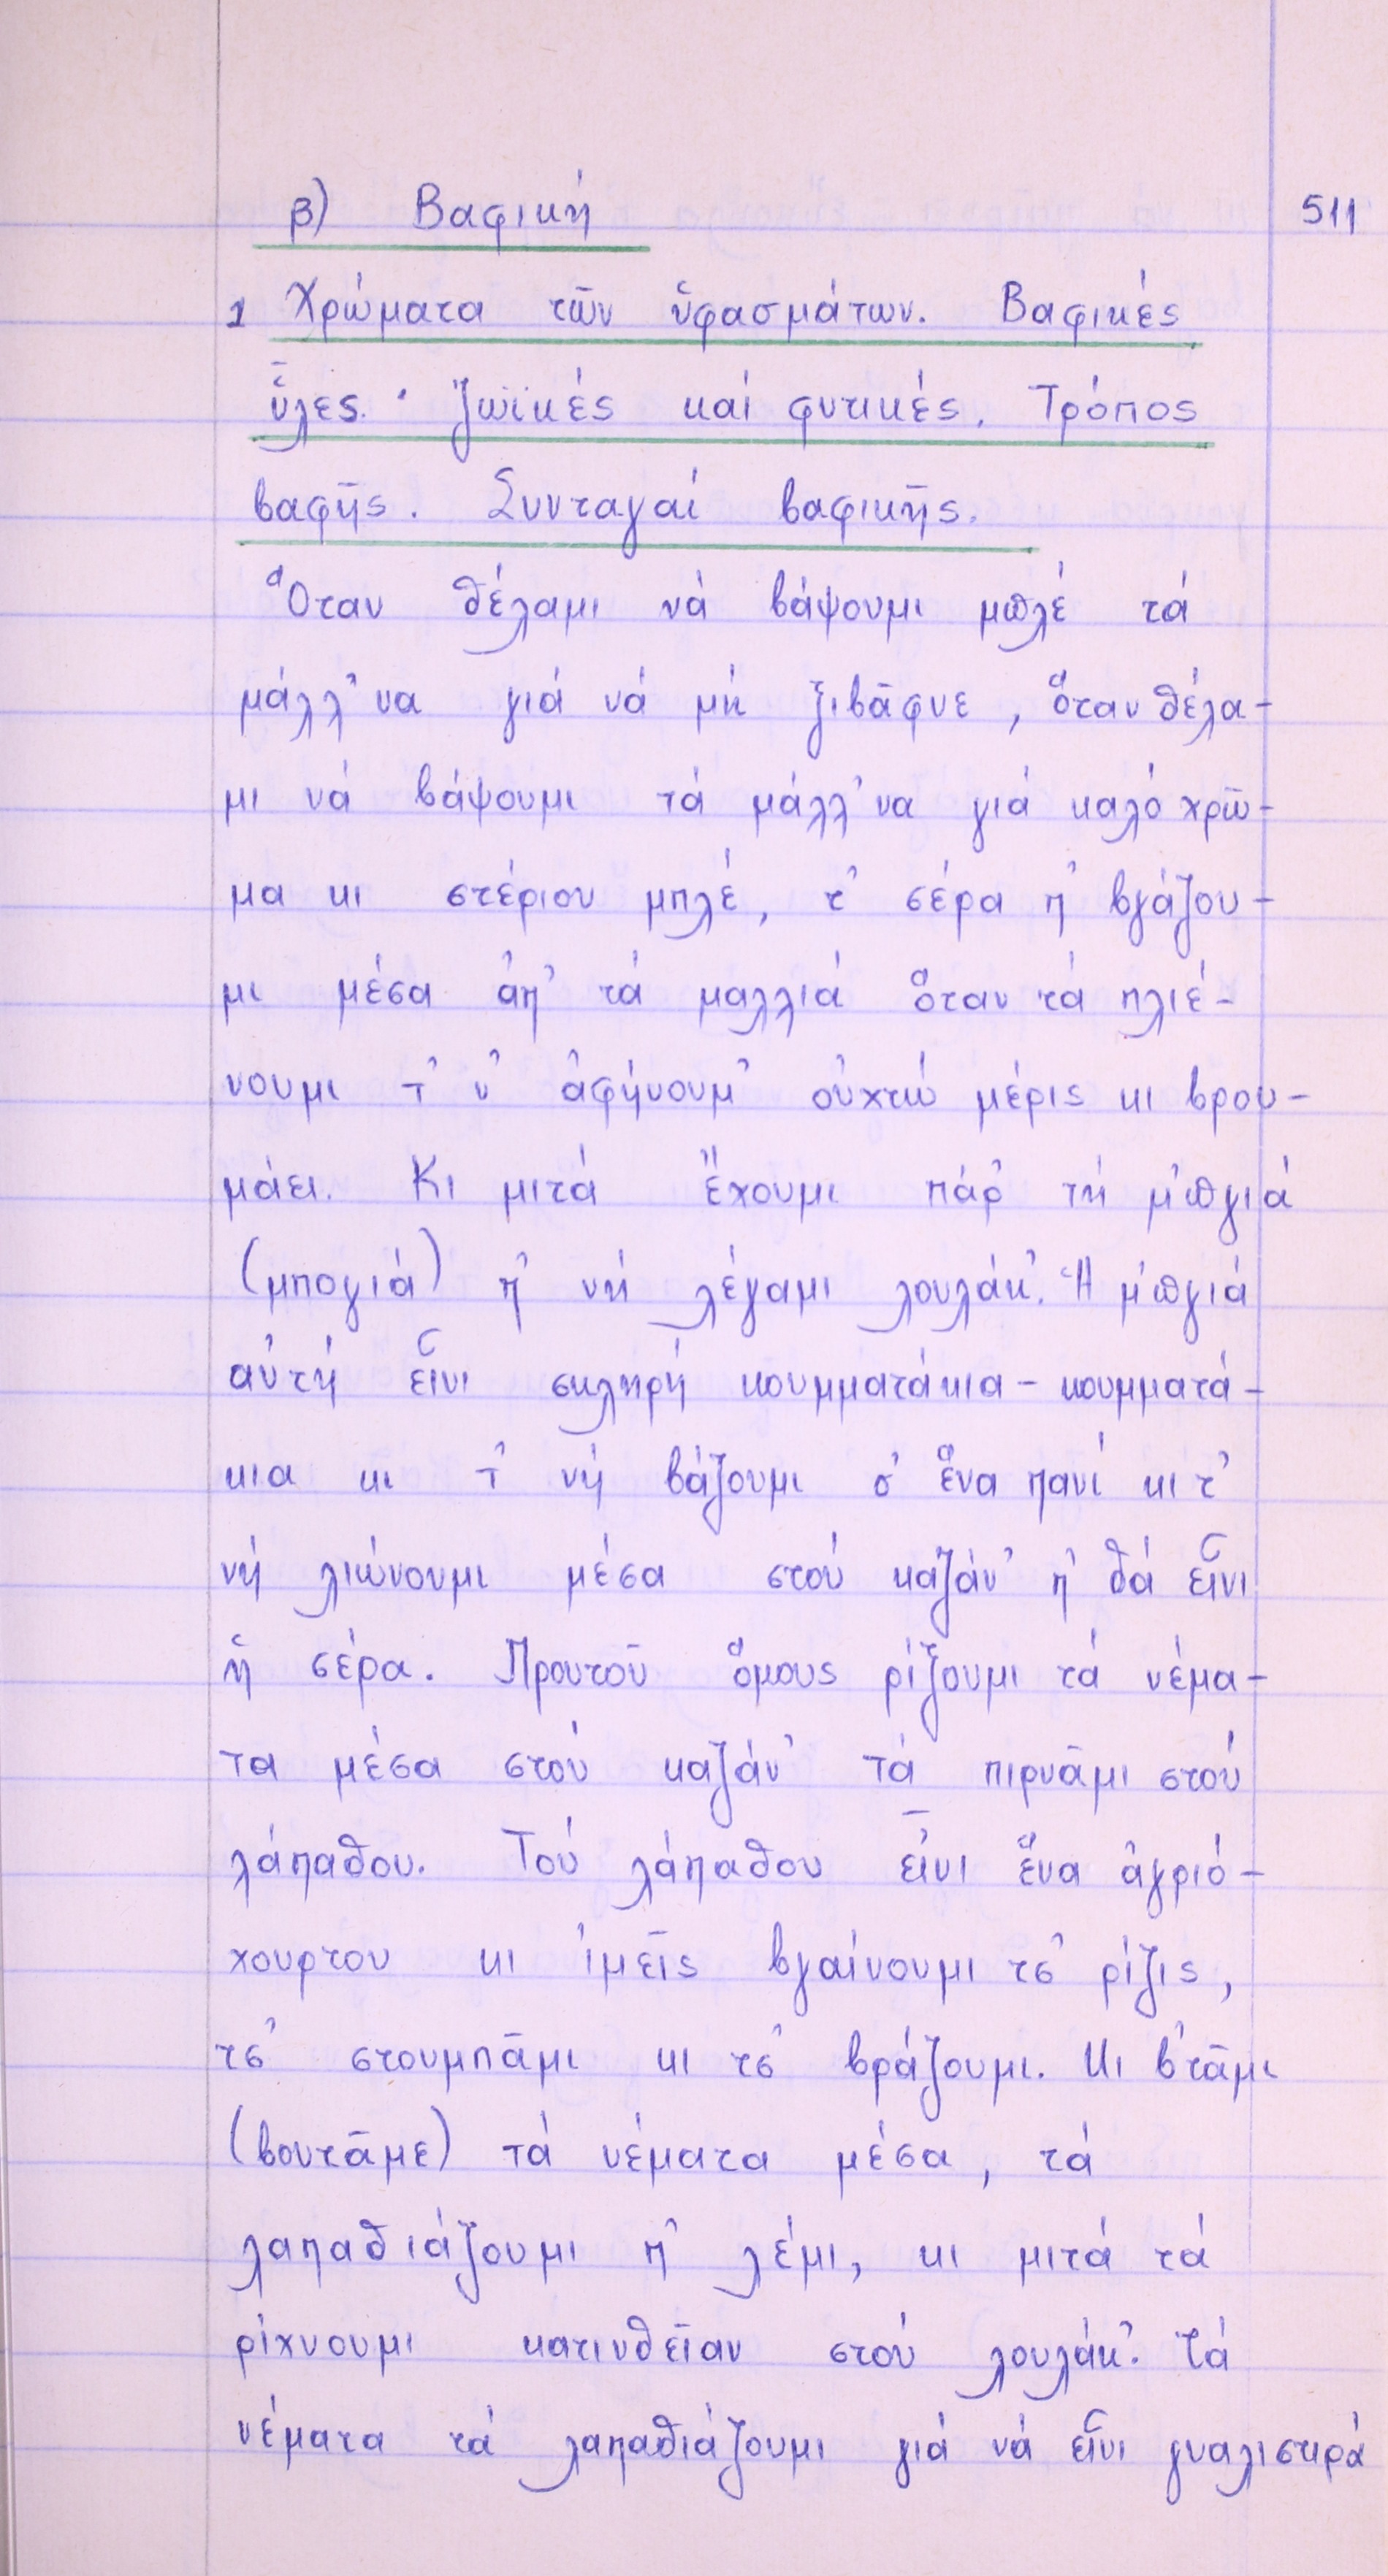 β) Βαφική 511
1 Χρώματα τῶν ὑφασμάτων. Βαφικές
ὗλες. ζωϊκές καί φυτικές. Τρόπος
βαφῆς. Συνταγαί βαφικῆς.
Ὅταν θέλαμι νά βάψουμι μπλέ τά
μάλλ'να γιά νά μή ξιβᾶφνε, ὅταν θέλα-
μι νά βάψουμι τά μάλλ'να γιά καλό χρῶ-
μα κι στέριου μπλέ, τ' σέρα π' βγάζου-
μι μέσα ἀπ' τά μαλλιά ὅταν τά πλιέ-
νουμι τ' ν' ἀφήνουμ' οὐχτώ μέρις κι βρου-
μάει. Κι μιτά ἔχουμι πάρ' τή μ'πγιά
(μπογιά) π' νή λέγαμι λουλάκ'. Ἡ μ'πγιά
αὐτή εἶνι σκληρή κουμματάκια - κουμματά-
κια κι τ' νή βάζουμι σ' ἕνα πανί κι τ'
νή λιώνουμι μέσα στού καζάν' π' θά εἶνι
ἡ σέρα. Προυτοῦ ὅμους ρίξουμι τά νέμα-
τα μέσα στού καζάν' τά πιρνᾶμι στού
λάπαθου. Τού λάπαθου εἶνι ἕνα ἀγριό-
χουρτου κι ἰμεῖς βγαίνουμι τσ' ρίζις,
τσ' στουμπᾶμι κι τσ' βράζουμι. Κι β'τᾶμι
(βουτᾶμε) τά νέματα μέσα, τά
λαπαθιάζουμι π' λέμι, κι μιτά τά
ρίχνουμι κατινθεῖαν στού λουλάκ'. Τά
νέματα τά λαπαθιάζουμι γιά νά εἶνι γυαλιστιρά